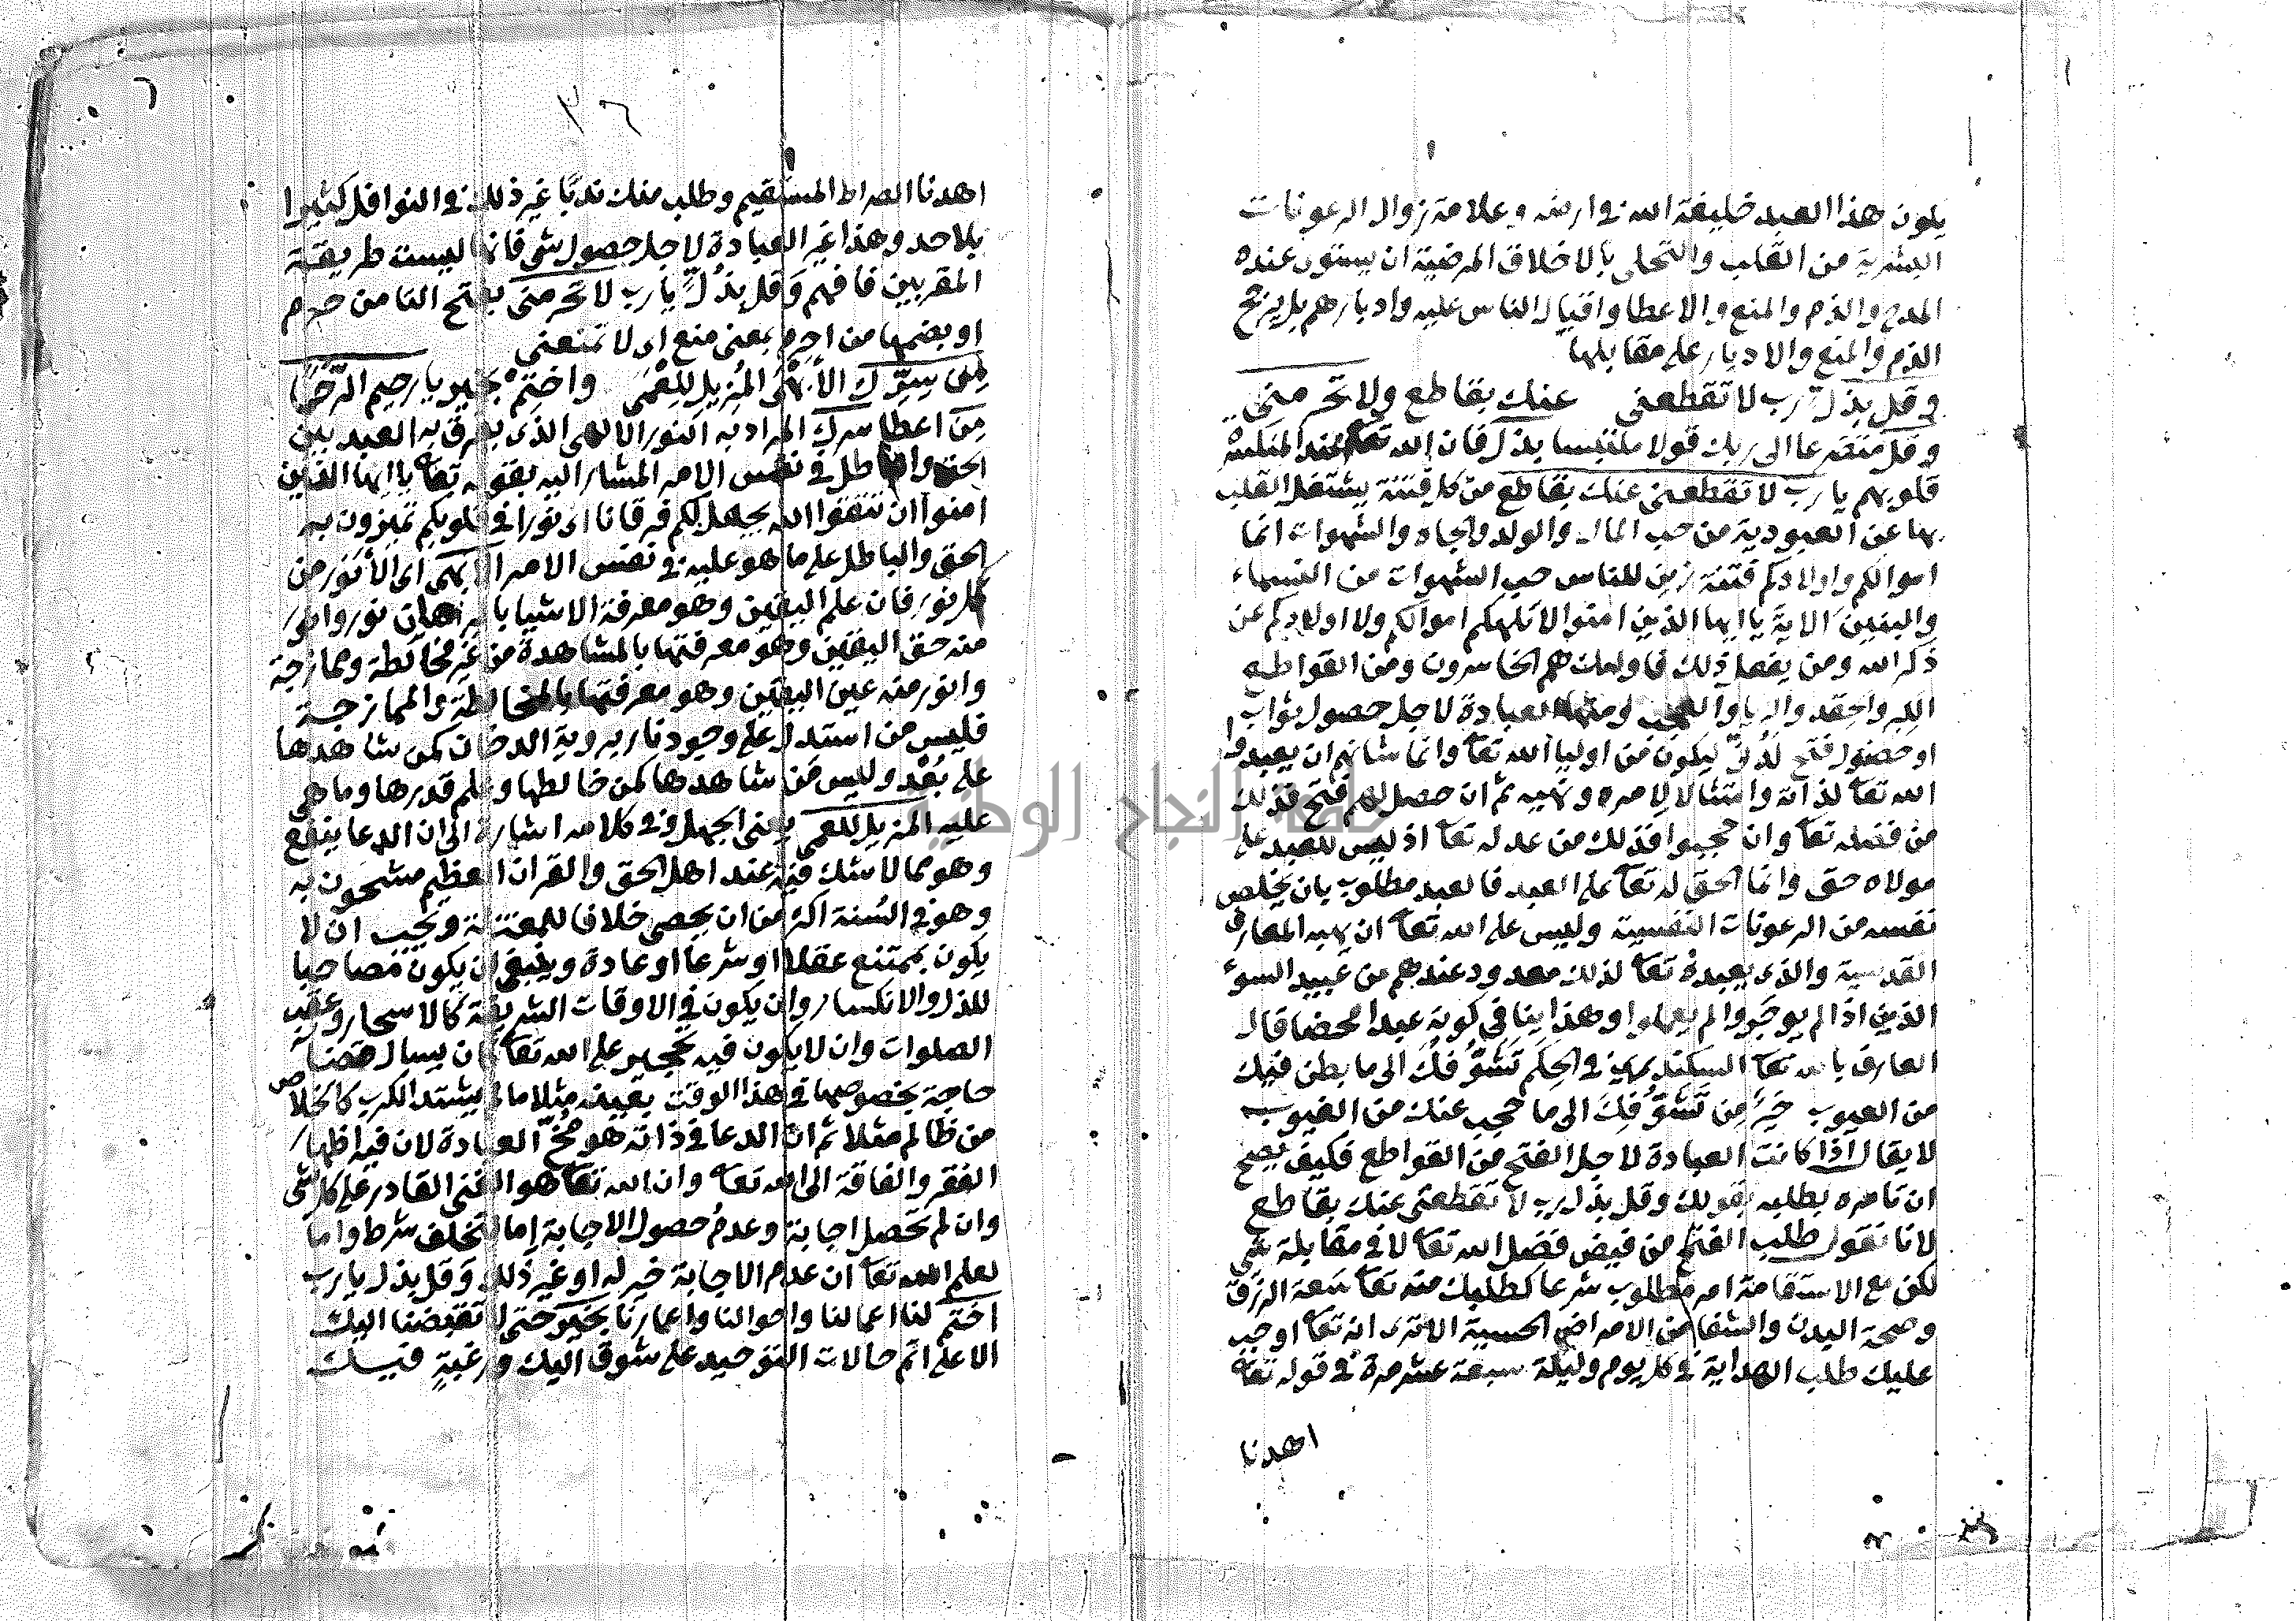 يكون هذا العبد خليفة الله في ارضه وعلامة زوال الرعونات
البشرية من القلب والتحلى بالاخلاق المرضية ان يستوى عنده
المدح والذم والمنع والاعطا واقبال الناس عليه وادبارهم بل يرجح
الذم والمنع والادبار على مقابلها
وقل بذل رب لا تقطعني عنك بقاطع ولا تحرمني
وقل متضرعا الى ربك قولا ملتبسا بذل فان الله تعا عند المنكسرة
قلوبهم يا رب لا تقطعني عنك بقاطع من كل فتنة يشتغل القلب
بها عن العبودية من حب المال والولد والجاه والشهوات انما
اموالكم واولادكم فتنة زين للناس حب الشهوات من النساء
والبنين الاية يا ايها الذين امنوا لا تلهكم اموالكم ولا اولادكم عن
ذكر الله ومن يفعل ذلك فاولئك هم الخاسرون ومن القواطع
الكبر والحقد والريا والعجب ومنها العبادة لاجل حصول ثواب
او حصول فتح لدنى ليكون من اوليا الله تعا وانما شانهم ان يعبدوا
الله تعا لذاته وامتثالا لامره ونهيه ثم ان حصل لهم فتح فذلك
من فضله تعا وان حجبوا فذلك من عدله تعا اذ ليس للعبد على
مولاه حق وانما الحق له تعا على العبد فالعبد مطلوب بان يخلص
نفسه من الرعونات النفسية وليس على الله تعا ان يهبه المعارف
القدسية والذى يعبده تعا لذلك معدود عندهم من عبيد السوء
الذين اذا لم يوجروا لم يعملوا وهذا ينافى كونه عبدا محضا قال
العارف بالله تعا السكندرى في الحكم تشوفك الى ما بطن فيك
من العيوب خير من تشوفك الى ما حجب عنك من الغيوب
لا يقال اذا كانت العبادة لاجل الفتح من القواطع فكيف يصح
ان تامره بطلبه بقولك وقل بذل رب لا تقطعني عنك بقاطع
لانا نقول طلب الفتح من فيض فضل الله تعا لا في مقابلة شى
لكن مع الاستقامة امر مطلوب شرعا كطلبك منه تعا سعة الرزق
وصحة البدن والشفا من الامراض الحسية الا ترى انه تعا اوجب
عليك طلب الهداية في كل يوم وليلة سبعة عشر مرة في قوله تعا
اهدنا
٣٦
اهدنا الصراط المستقيم وطلب منك ندبا غير ذلك في النوافل كثيرا
بلا حد وهذا غير العبادة لاجل حصول شى فانها ليست طريقة
المقربين فافهم وقل بذل يا رب لا تحرمنى بفتح التا من حرم
او بضمها من احرم بمعنى منع اى لا تمنعنى
من سرك الابهى المزيل للعمى واختم بخير يا رحيم الرحما
من اعطا سرك المراد به النور الالهى الذى يفرق به العبد بين
الحق والباطل في نفس الامر المشار اليه بقوله تعا يا ايها الذين
امنوا ان تتقوا الله يجعل لكم فرقانا اى نورا في قلوبكم تميزون به
الحق والباطل على ما هو عليه في نفس الامر الابهى اى الانور من
كل نور فان علم اليقين وهو معرفة الاشيا بالبرهان نور وانور
منه حق اليقين وهو معرفتها بالمشاهدة من غير مخالطة وممازجة
وانور منه عين اليقين وهو معرفتها بالمخالطة والممازجة
فليس من استدل على وجود نار بروية الدخان كمن شاهدها
على بعد وليس من شاهدها كمن خالطها وعلم قدرها وما هى
عليه المزيل للعمى يعنى الجهل وفي كلامه اشارة الى ان الدعا ينفع
وهو مما لا شك فيه عند اهل الحق والقران العظيم مشحون به
وهو في السنة اكثر من ان يحصى خلافا للمعتزلة ويجب ان لا
يكون بممتنع عقلا او شرعا او عادة وينبغى ان يكون مصاحبا
للذل والانكسار وان يكون في الاوقات الشريفة كالاسحار وعقب
الصلوات وان لا يكون فيه تحجير على الله تعا كان يسال قضا
حاجة بخصوصها في هذا الوقت بعينه مثلا ما لم يشتد الكرب كالخلاص
من ظالم مثلا ثم ان الدعا في ذاته هو مخ العبادة لان فيه اظهار
الفقر والفاقة الى الله تعا وان الله تعا هو الغنى القادر على كل شى
وان لم تحصل اجابة وعدم حصول الاجابة اما لتخلف شرط واما
لعلم الله تعا ان عدم الاجابة خير له او غير ذلك وقل بذل يا رب
اختم لنا اعمالنا واحوالنا واعمارنا بخير حتى لا تقبضنا اليك
الا على اتم حالات التوحيد على شوق اليك ورغبة فيك
جامعة النجاح الوطنية